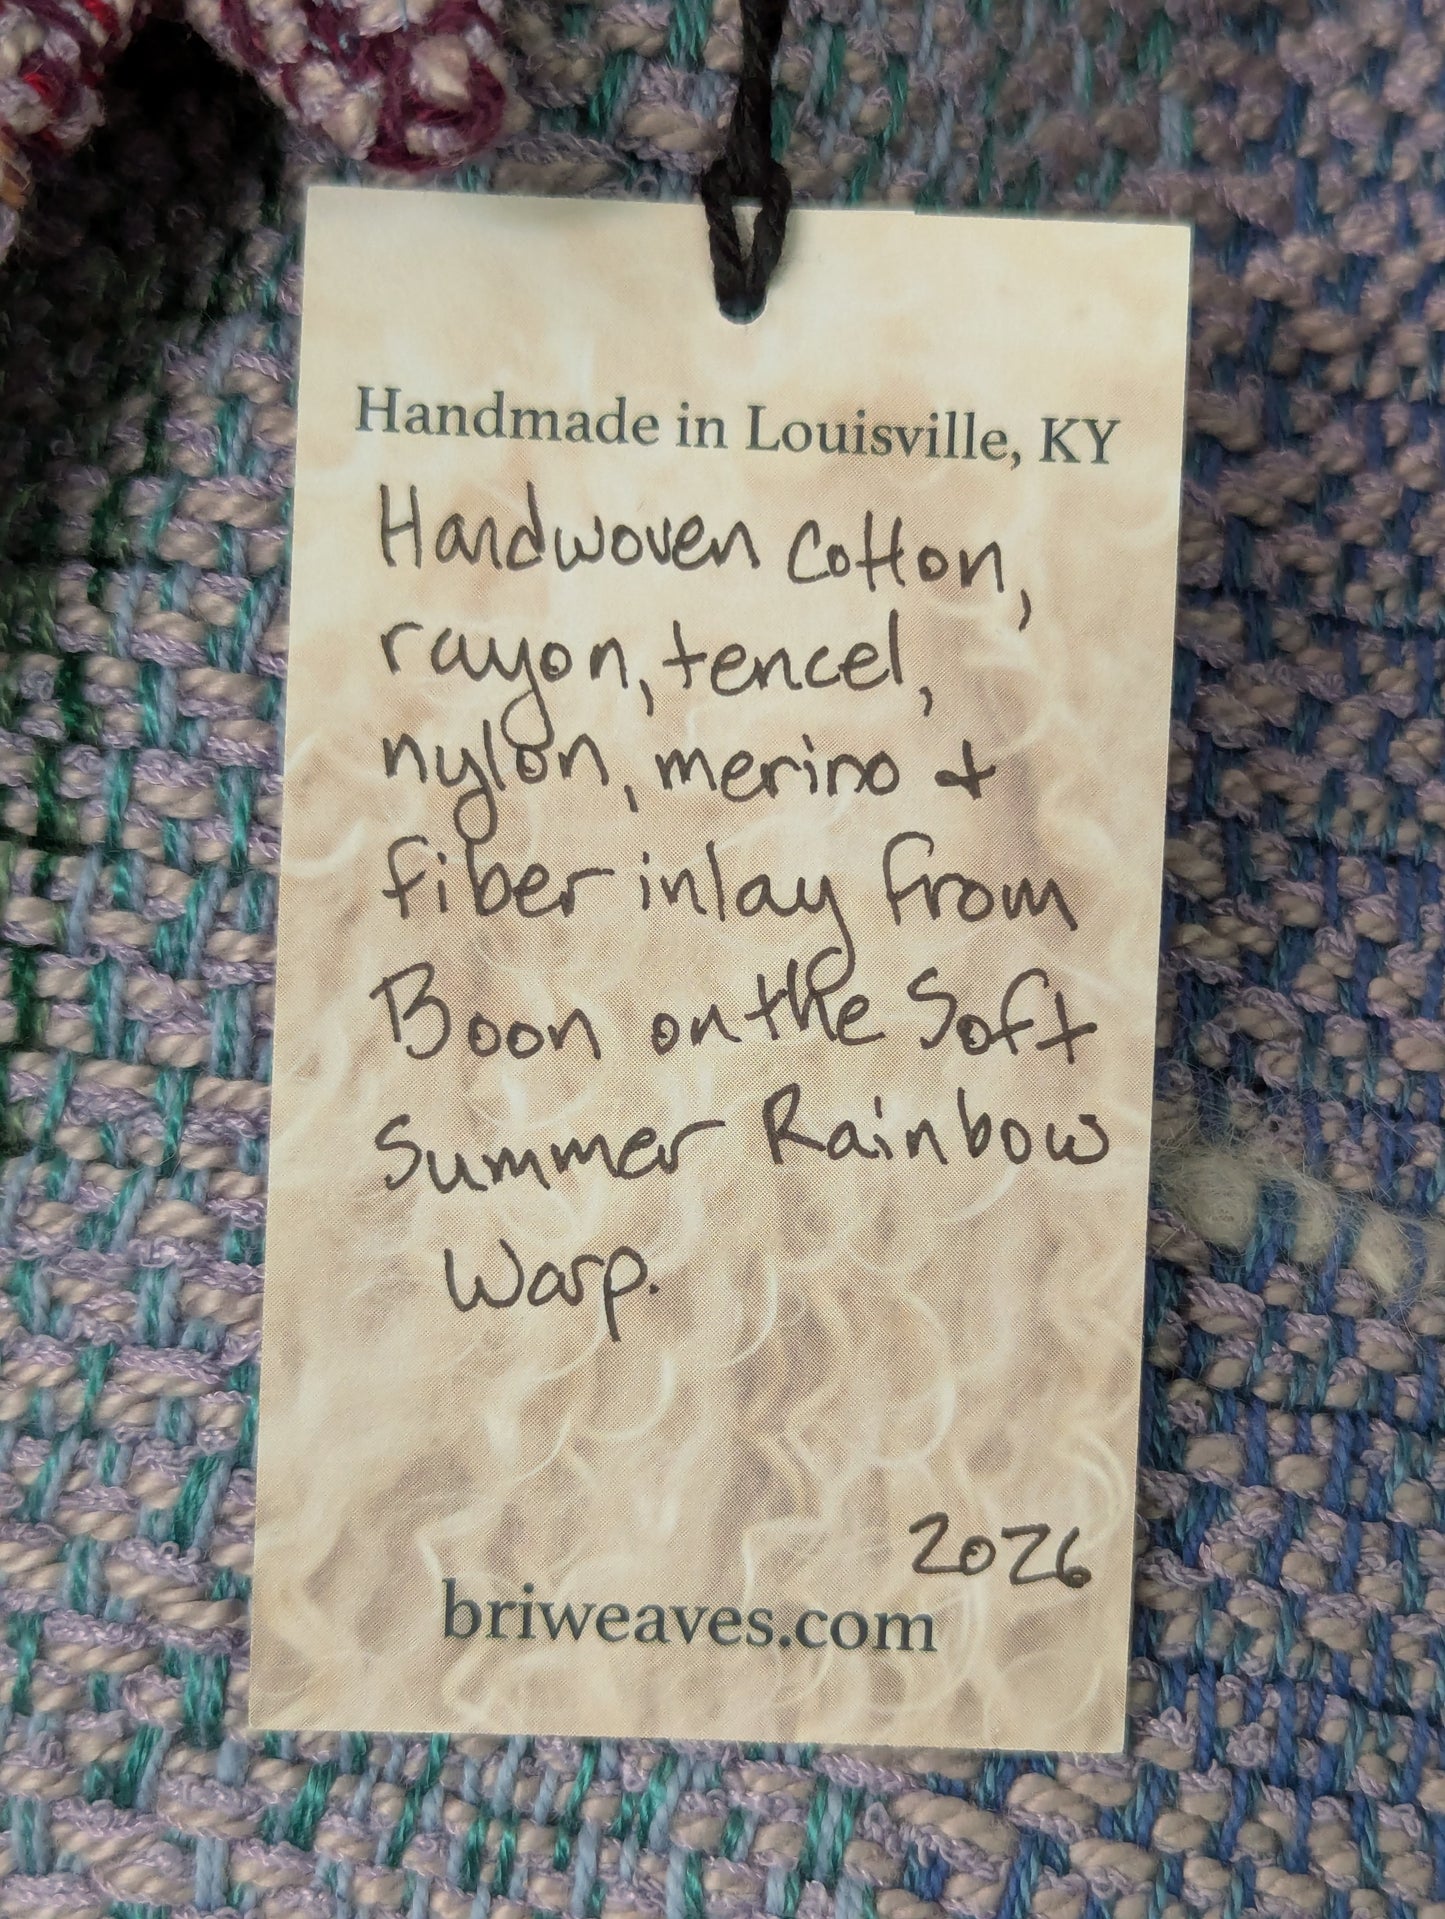 Handmade in Louisville, KY
Handwoven Cotton,
rayon, tencel,
nylon, merino +
fiber inlay from
Boon on the Soft
Summer Rainbow
Warp.
2026
briweaves.com